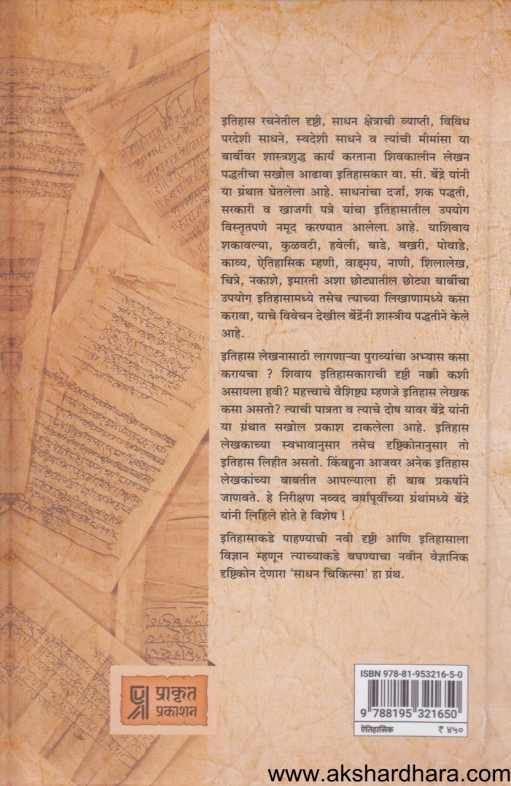 इतिहास रचनेतील दृष्टी, साधन क्षेत्राची व्याप्ती, विविध
परदेशी साधने, स्वदेशी साधने व त्यांची मीमांसा या
बाबींवर शास्त्रशुद्ध कार्य करताना शिवकालीन लेखन
पद्धतीचा सखोल आढावा इतिहासकार वा. सी. बेंद्रे यांनी
या ग्रंथात घेतलेला आहे. साधनांचा दर्जा, शक पद्धती,
सरकारी व खाजगी पत्रे यांचा इतिहासातील उपयोग
विस्तृतपणे नमूद करण्यात आलेला आहे. याशिवाय
शकावल्या, कुळवटी, हवेली, वाडे, बखरी, पोवाडे,
काव्य, ऐतिहासिक म्हणी, वाङ्मय, नाणी, शिलालेख,
चित्रे, नकाशे, इमारती अशा छोट्यातील छोट्या बाबींचा
उपयोग इतिहासामध्ये तसेच त्याच्या लिखाणामध्ये कसा
करावा, याचे विवेचन देखील बेंद्रेंनी शास्त्रीय पद्धतीने केले
आहे.
इतिहास लेखनासाठी लागणाऱ्या पुराव्यांचा अभ्यास कसा
करायचा ? शिवाय इतिहासकाराची दृष्टी नक्की कशी
असायला हवी? महत्त्वाचे वैशिष्ट्य म्हणजे इतिहास लेखक
कसा असतो? त्याची पात्रता व त्याचे दोष यावर बेंद्रे यांनी
या ग्रंथात सखोल प्रकाश टाकलेला आहे. इतिहास
लेखकाच्या स्वभावानुसार तसेच दृष्टिकोनानुसार तो
इतिहास लिहीत असतो. किंबहुना आजवर अनेक इतिहास
लेखकांच्या बाबतीत आपल्याला ही बाब प्रकर्षाने
जाणवते. हे निरीक्षण नव्वद वर्षांपूर्वीच्या ग्रंथांमध्ये बेंद्रे
यांनी लिहिले होते हे विशेष !
इतिहासाकडे पाहण्याची नवी दृष्टी आणि इतिहासाला
विज्ञान म्हणून त्याच्याकडे बघण्याचा नवीन वैज्ञानिक
दृष्टिकोन देणारा 'साधन चिकित्सा' हा ग्रंथ.
प्राकृत
प्रकाशन
ISBN 978-81-953216-5-0
9 788195 321650
ऐतिहासिक ₹ ४५०
www.akshardhara.com